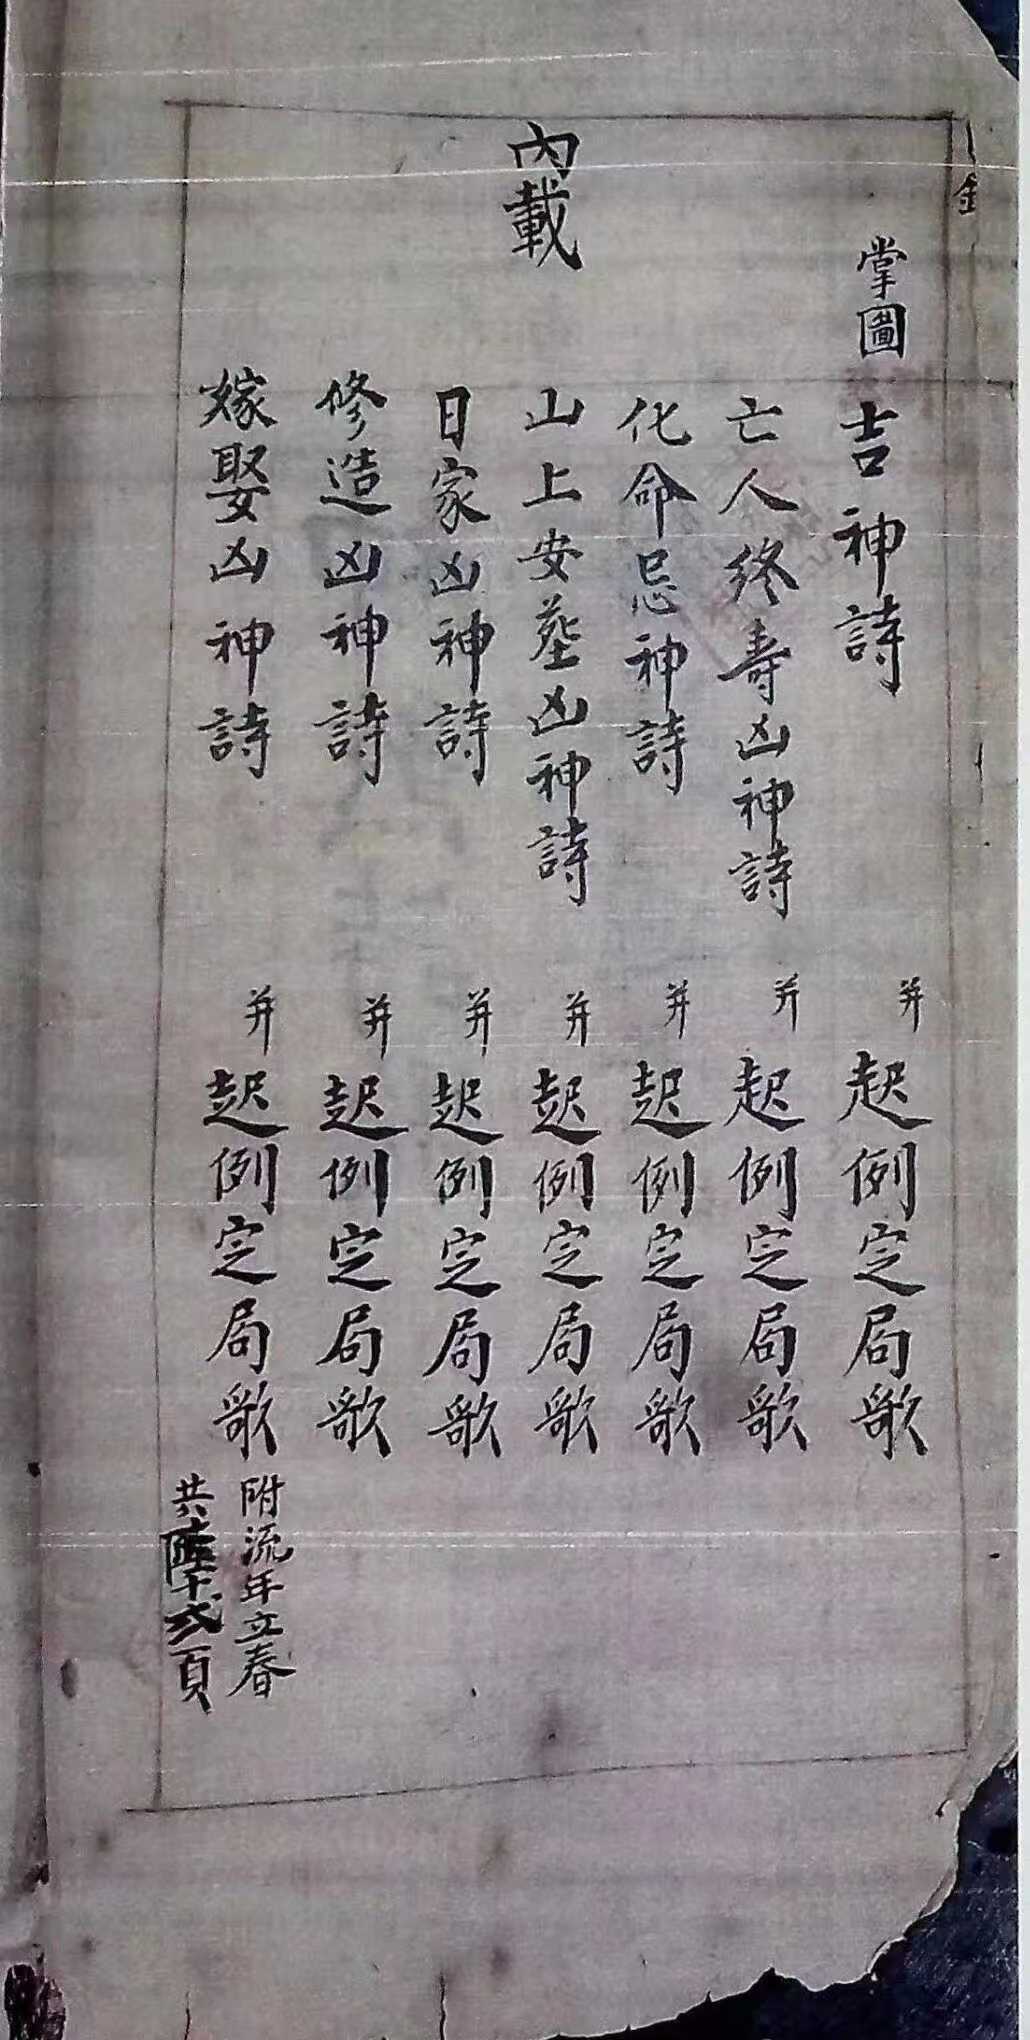 內載
掌圖 吉神詩 并 起例定局歌
亡人终寿凶神詩 并 起例定局歌
化命忌神詩 并 起例定局歌
山上安塟凶神詩 并 起例定局歌
日家凶神詩 并 起例定局歌
修造凶神詩 并 起例定局歌
嫁娶凶神詩 并 起例定局歌
附流年立春
共陸十弍頁